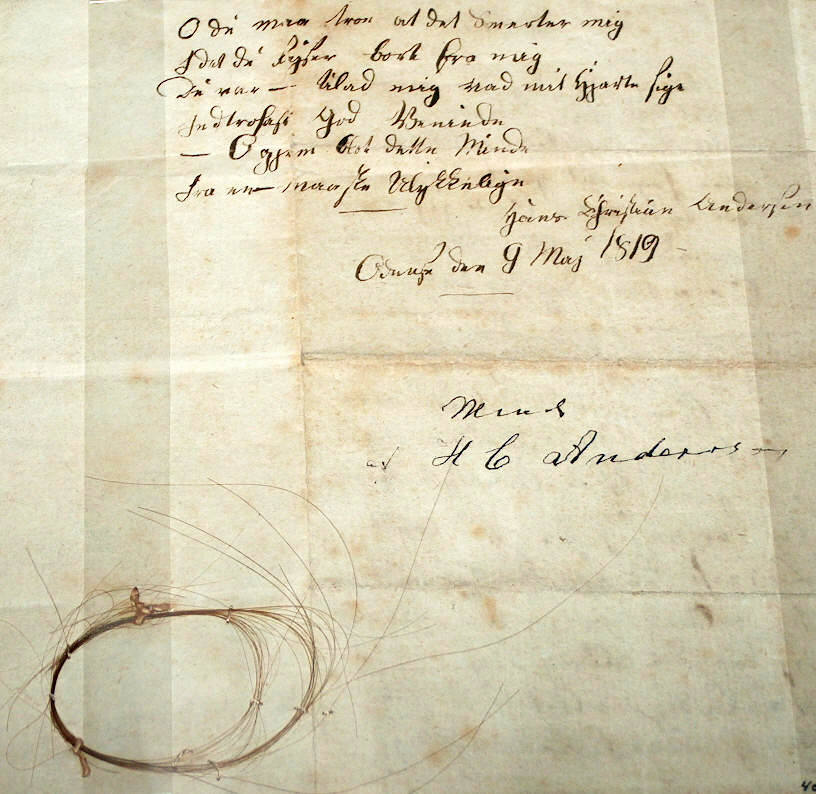 O du maa troe at det Smerter mig
I det du Rÿser bort fra mig
Du var — tilad mig vad mit Hjarte sige
En trofast God Veninde
— O gjem dot dette Minde
fra en maaske Ulykkelige
Hans Christian Andersen
Odense den 9 Maj 1819
Minde
af H C Andersen